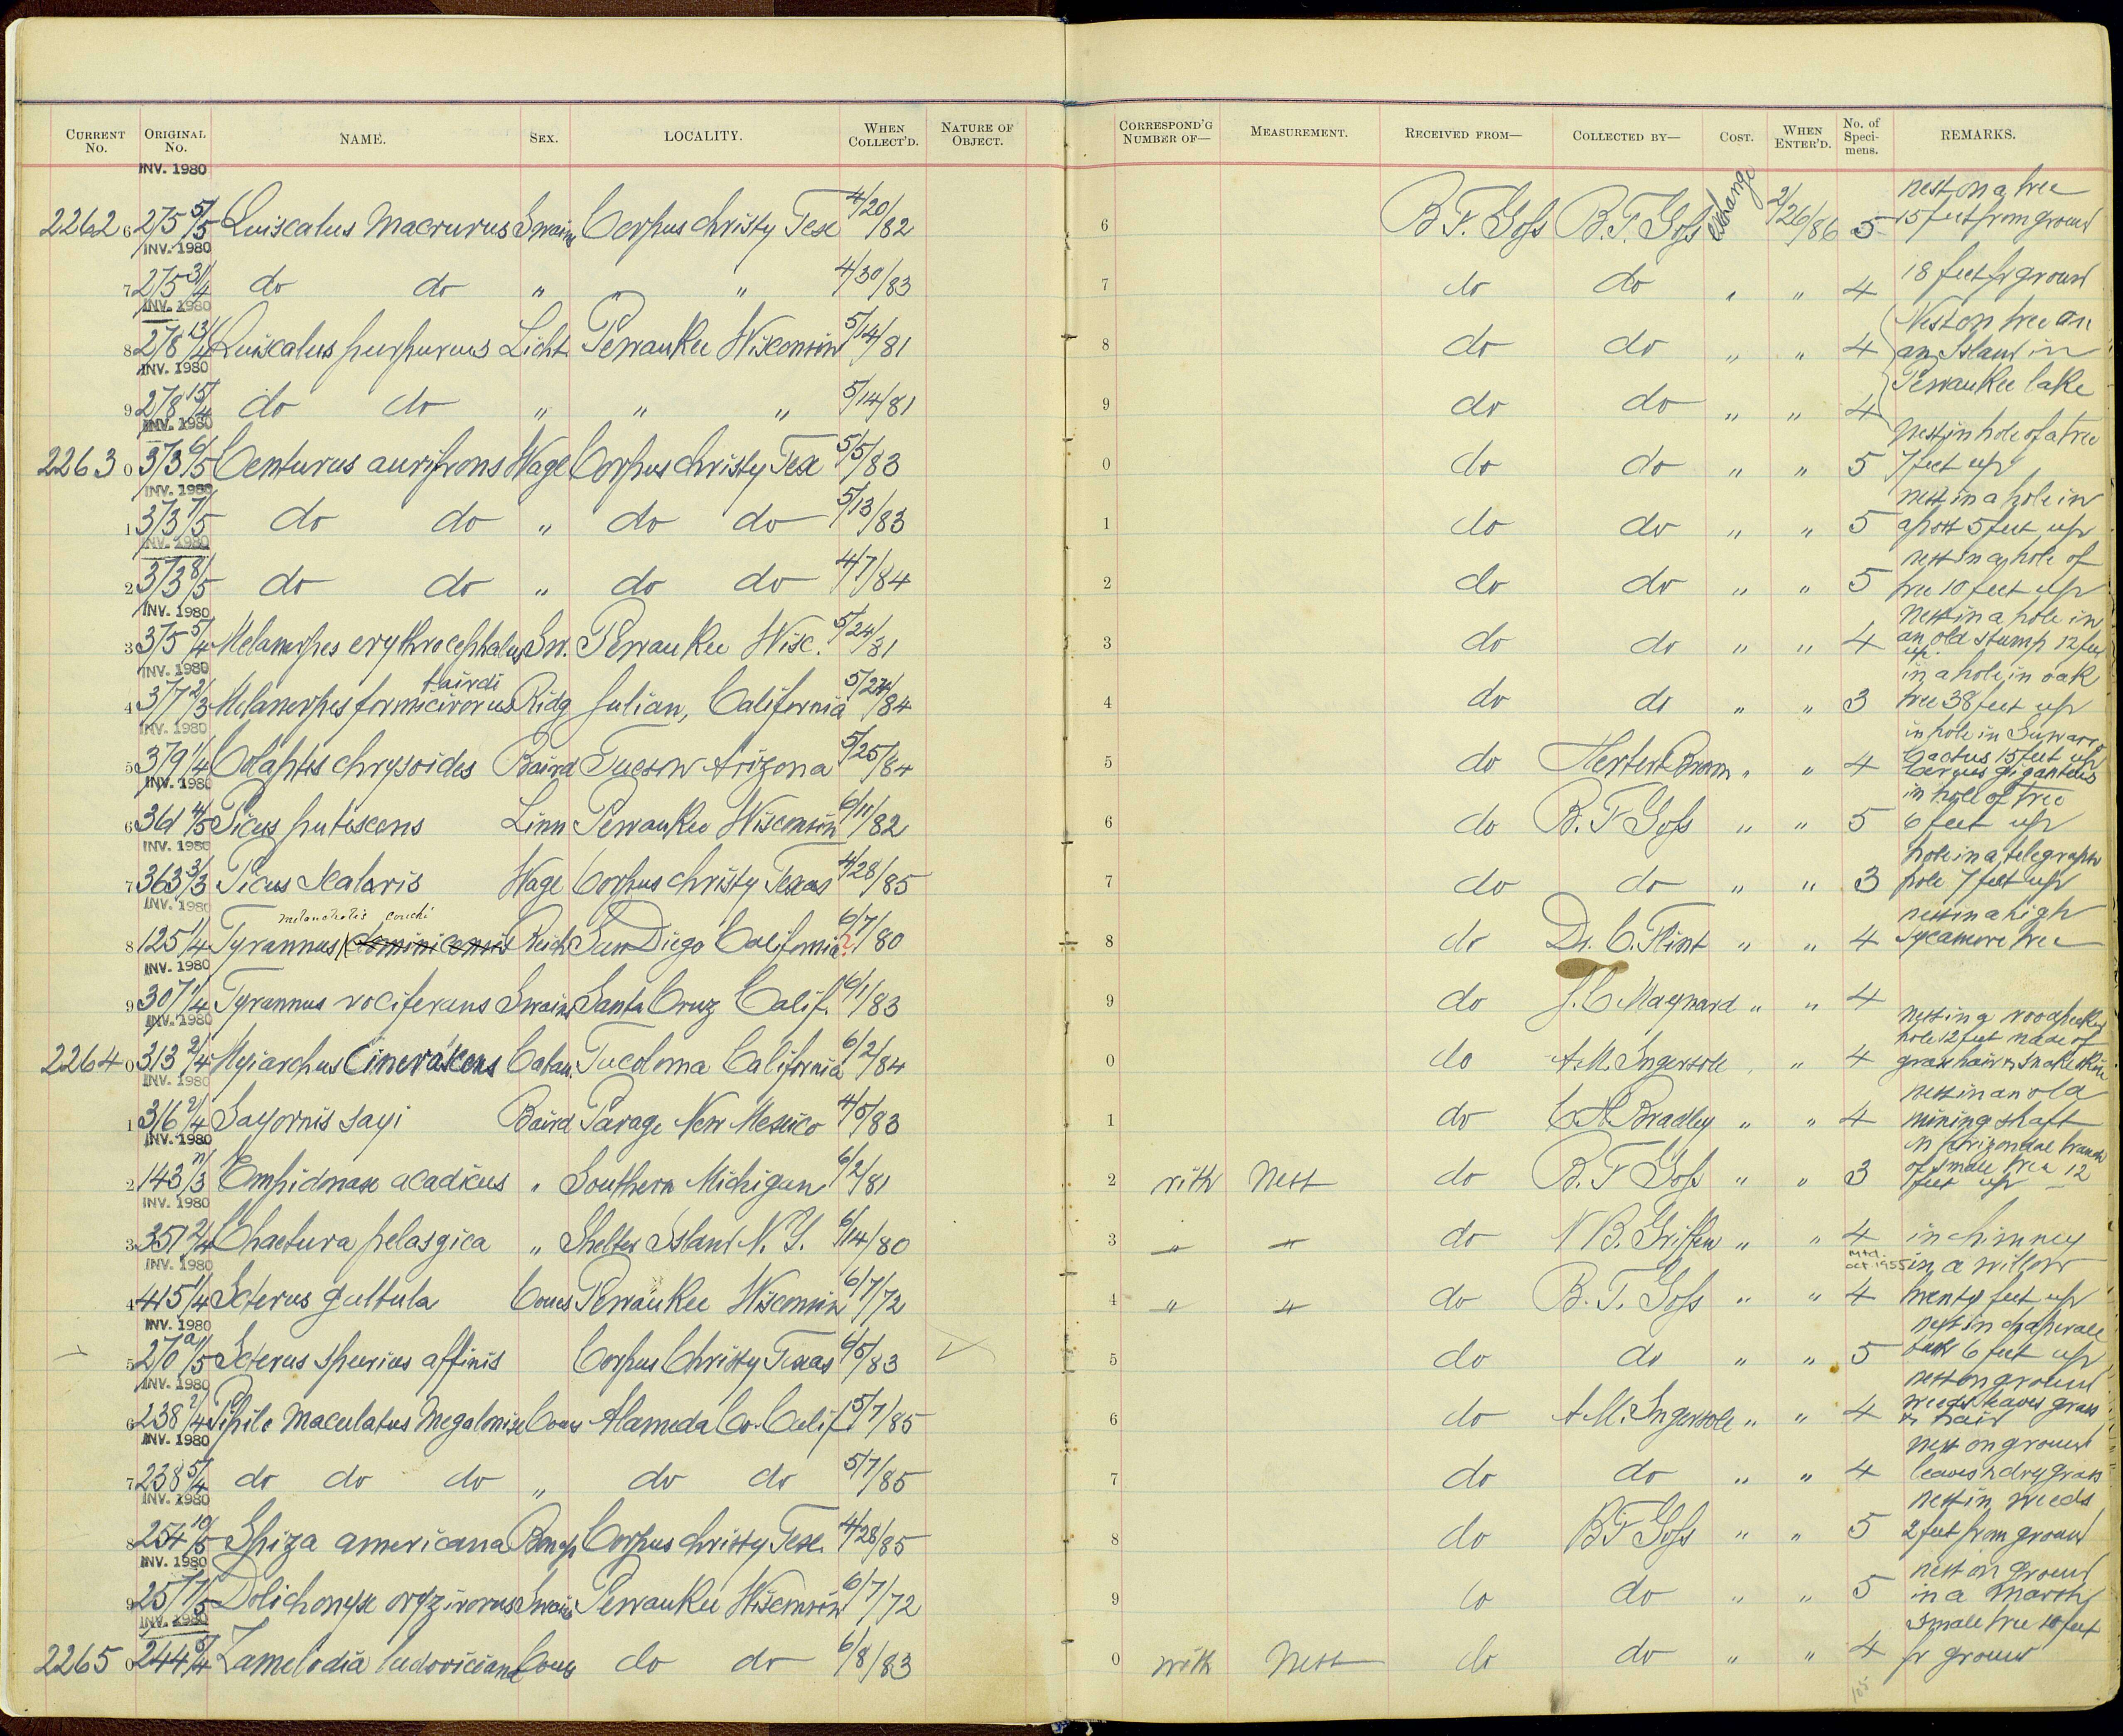 CURRENT No. ORIGINAL No. NAME. SEX. LOCALITY. WHEN COLLECT'D. NATURE OF OBJECT. CORRESPOND'G NUMBER OF— MEASUREMENT. RECEIVED FROM— COLLECTED BY— COST. WHEN ENTER'D. No. of Speci-mens. REMARKS.
INV. 1980
2262 6 275 5/5 Quiscalus Macrurus Swains Corpus christy Tex 4/20/82 6 B.F. Goss B.F. Goss exchange 2/26/86 5 nest on a tree 15 feet from ground
INV. 1980
7 275 3/4 do do " " " 4/30/83 7 do do " " 4 18 feet fr ground
INV. 1980
8 278 13/4 Quiscalus purpureus Licht Pewaukee Wisconsin 5/14/81 8 do do " " 4 Nest on tree on an Island in
INV. 1980
9 278 15/4 do do " " " 5/14/81 9 do do " " 4 Pewaukee lake
INV. 1980
2263 0 373 6/5 Centurus aurifrons Wagl Corpus christy Tex 5/5/83 0 do do " " 5 Nest in hole of a tree 7 feet up
INV. 1980
1 373 7/5 do do " do do 5/13/83 1 do do " " 5 nest in a hole in a post 5 feet up
INV. 1980
2 373 8/5 do do " do do 4/7/84 2 do do " " 5 nest in a hole of tree 10 feet up
INV. 1980
3 375 5/4 Melanerpes erythrocephalus Sw. Pewaukee Wisc. 5/24/81 3 do do " " 4 Nest in a hole in an old stump 12 feet up.
INV. 1980
4 377 2/3 Melanerpes formicivorus bairdi Ridg Julian, California 5/27/84 4 do do " " 3 in a hole in oak tree 38 feet up
INV. 1980
5 379 1/4 Colaptes chrysoides Baird Tucson Arizona 5/25/84 5 do Herbert Brown " " 4 in hole in Suwarro Cactus 15 feet up Cereus giganteus
INV. 1980
6 361 4/5 Picus pubescens Linn Pewaukee Wisconsin 6/11/82 6 do B. F Goss " " 5 in hole of Tree 6 feet up
INV. 1980
7 363 3/3 Picus Scalaris Wagl Corpus christy Texas 4/28/85 7 do do " " 3 hole in a telegraph pole 7 feet up
INV. 1980
8 125 1/4 Tyrannus melancholis couchi dominicensis Reich San Diego California ? 6/7/80 8 do Dr. C. Flint " " 4 nest in a high sycamore tree
INV. 1980
9 307 1/4 Tyrannus vociferans Swains Santa Cruz Calif. 6/1/83 9 do J. C Maynard " " 4
INV. 1980
2264 0 313 2/4 Myiarchus Cinerascens Caban. Tucoloma California 6/2/84 0 do A.M. Ingersole " " 4 nest in a woodpecker hole 12 feet made of grass hair & snake skin
INV. 1980
1 316 2/4 Sayornis sayi Baird Parage New Mexico 4/5/83 1 do C A. Bradley " " 4 nest in an old mining shaft
INV. 1980
2 143 11/3 Empidonax acadicus " Southern Michigan 6/2/81 2 with Nest do B. F Goss " " 3 on horizontal branch of small tree 12 feet up
INV. 1980
3 351 2/4 Chaetura pelasgica " Shelter Island N. Y. 6/14/80 3 " " do N B. Griffen " " 4 in chimney
INV. 1980
4 415 1/4 Icterus galbula Coues Pewaukee Wisconsin 6/7/72 4 " " do B. F. Goss " " 4 Mtd. Oct. 1955 in a willow twenty feet up
INV. 1980
5 270a 1/5 Icterus spurius affinis Corpus Christy Texas 6/5/83 5 do do " " 5 nest in chaperall bush 6 feet up
INV. 1980
6 238 2/4 Pipilo Maculatus Megalonix Coues Alameda Co. Calif 5/7/85 6 do A M. Ingersole " " 4 nest on ground weeds leaves grass & hair
INV. 1980
7 238 5/4 do do do " do do 5/7/85 7 do do " " 4 nest on ground leaves & dry grass
INV. 1980
8 254 10/5 Spiza americana Bonap Corpus christy Tex. 4/28/85 8 do B F Goss " " 5 nest in weeds 2 feet from ground
INV. 1980
9 257 7/5 Dolichonyx oryzivorus Swains Pewaukee Wisconsin 6/7/72 9 do do " " 5 nest on ground in a marsh
INV. 1980
2265 0 244 5/4 Zamelodia ludoviciana Coues do do 6/8/83 0 with Nest do do " " 4 small tree 10 feet fr ground
105